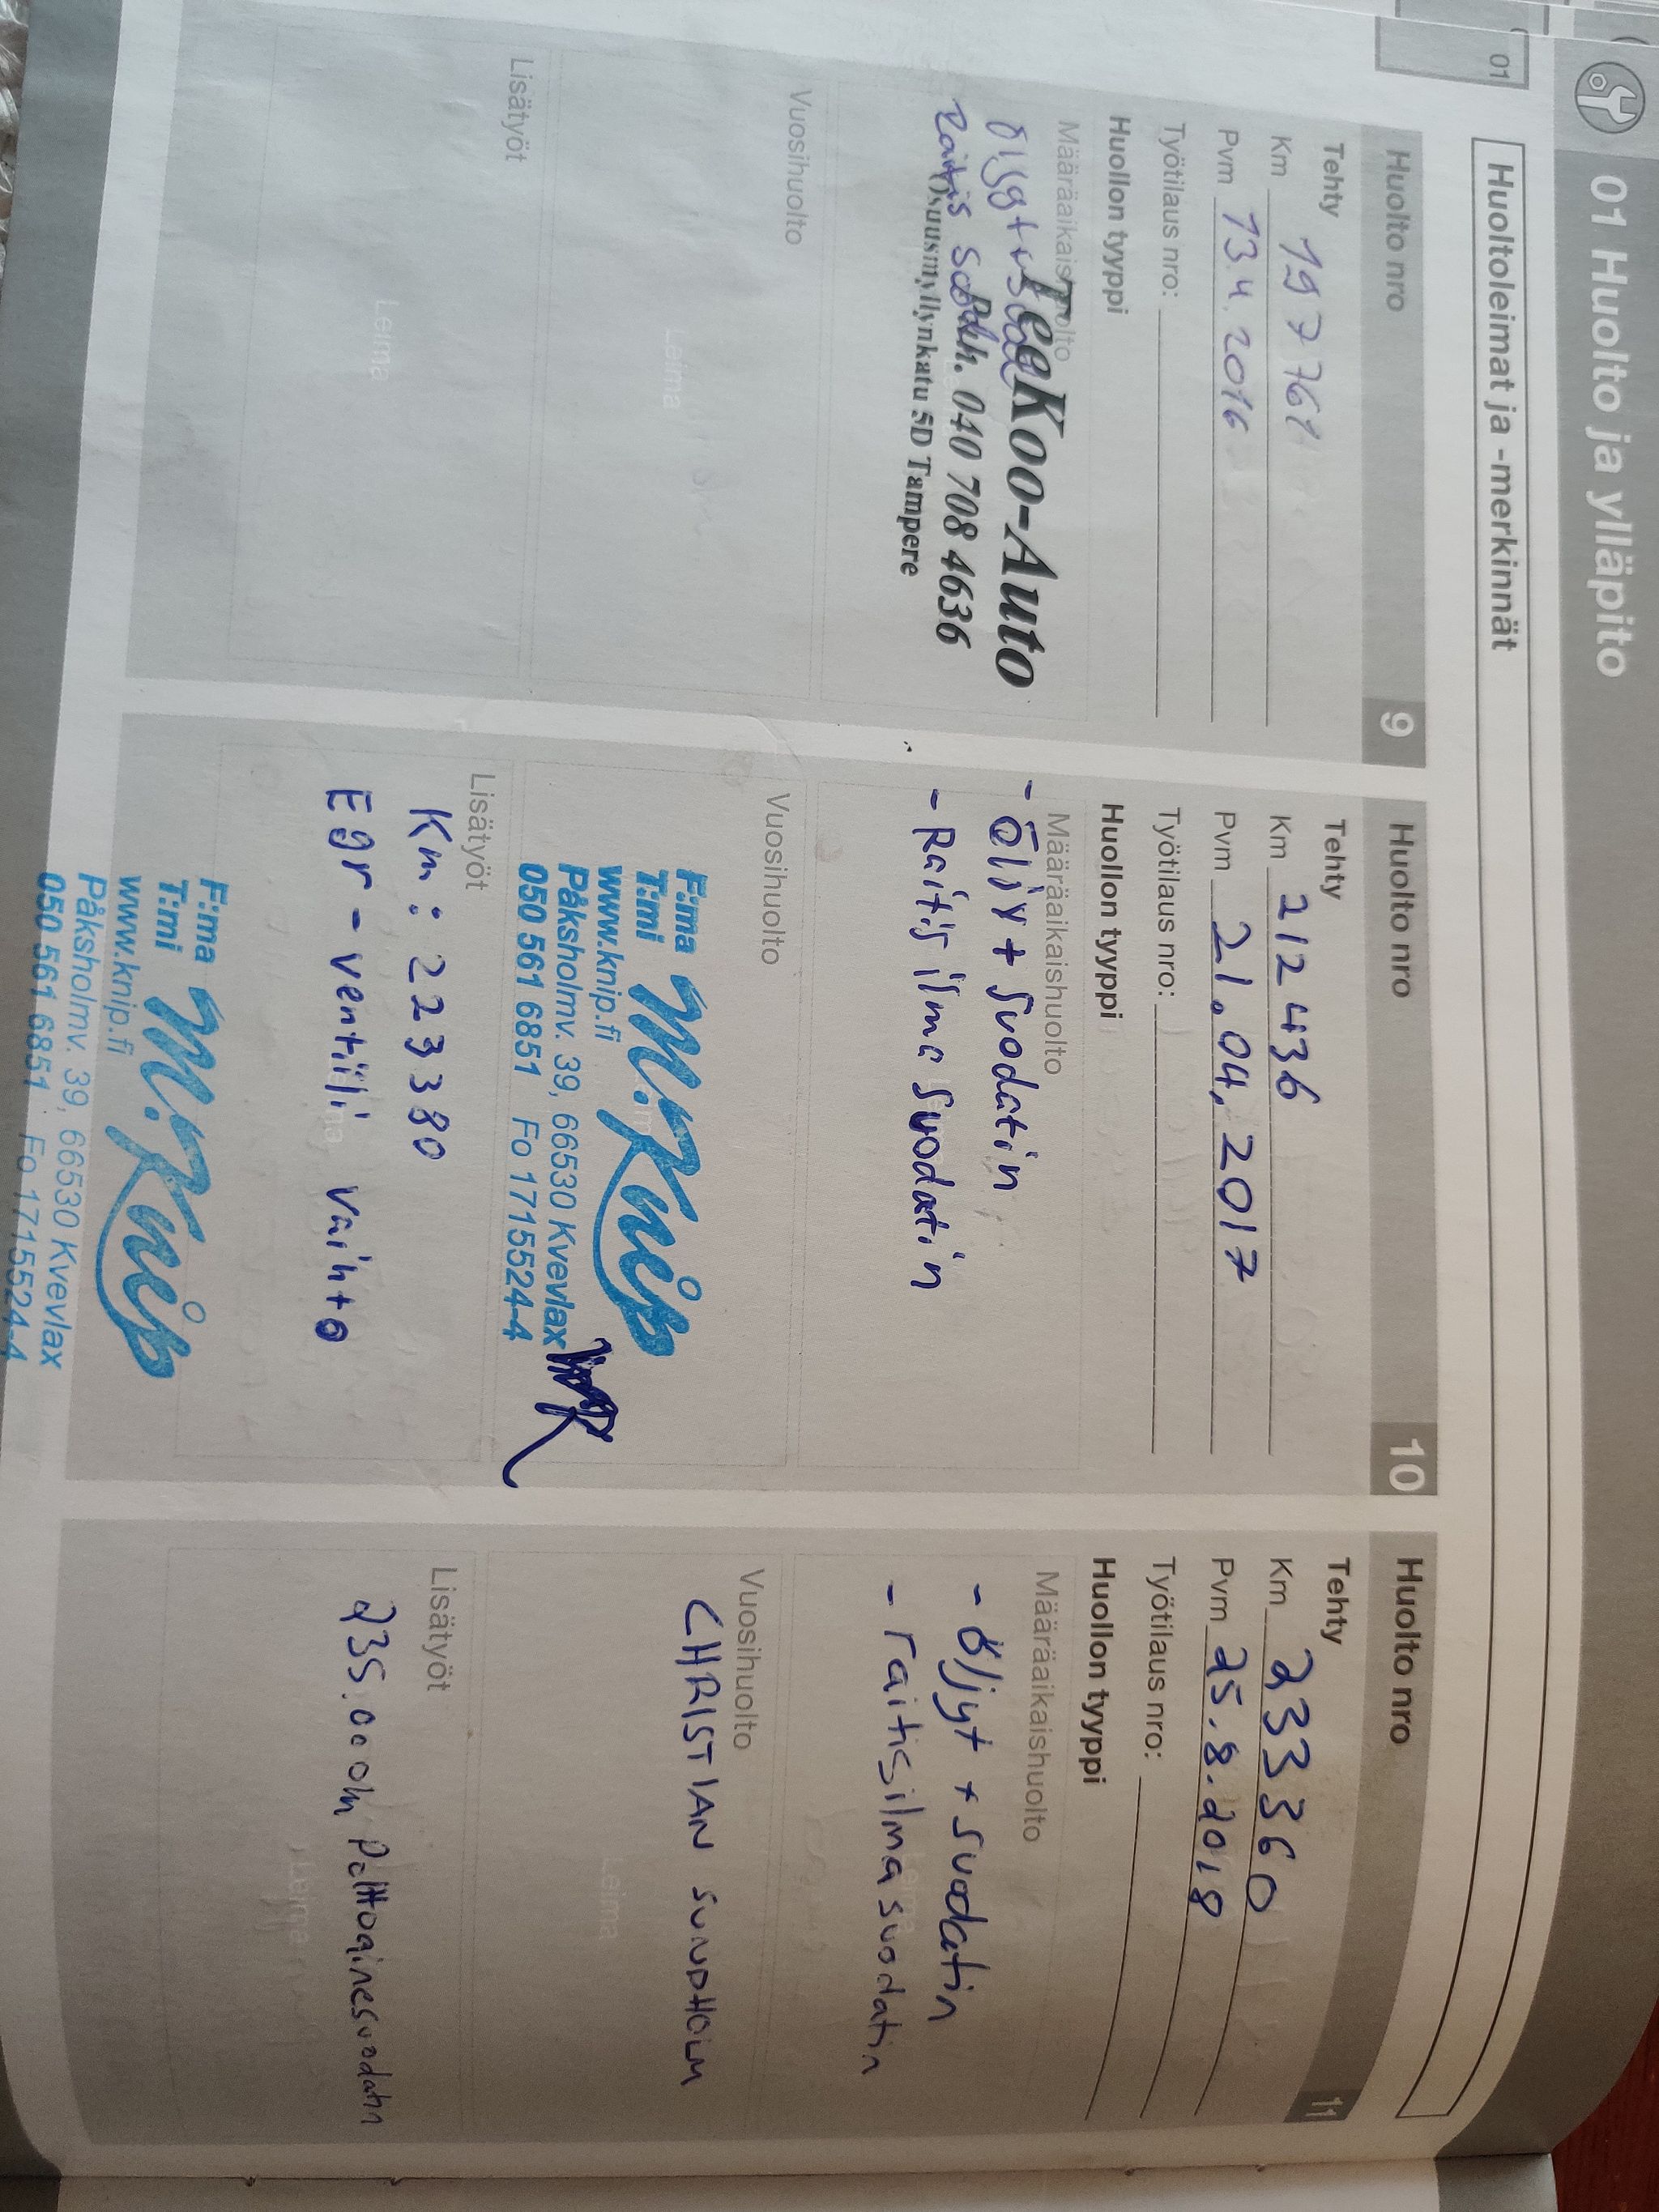 01 Huolto ja ylläpito
01
Huoltoleimat ja -merkinnät
Huolto nro 9
Tehty
Km 197761
Pvm 13.4.2016
Työtilaus nro:
Huollon tyyppi
Määräaikaishuolto
TeeKoo-Auto
Puh. 040 708 4636
Osuusmyllynkatu 5D Tampere
Vuosihuolto
Leima
Lisätyöt
Leima
Huolto nro 10
Tehty
Km 212436
Pvm 21.04.2017
Työtilaus nro:
Huollon tyyppi
Määräaikaishuolto
- Öljy + suodatin
- Raitis ilma suodatin
Vuosihuolto
F:ma
T:mi M.Knip
www.knip.fi
Påksholmv. 39, 66530 Kvevlax
050 561 6851 Fo 1715524-4
Lisätyöt
Km: 223380
Egr-venttiili vaihto
F:ma
T:mi M.Knip
www.knip.fi
Påksholmv. 39, 66530 Kvevlax
050 561 6851 Fo 1715524-4
Huolto nro 11
Tehty
Km 233360
Pvm 25.8.2018
Työtilaus nro:
Huollon tyyppi
Määräaikaishuolto
- Öljyt + suodatin
- raitisilmasuodatin
Vuosihuolto
CHRISTIAN SUNDHOLM
Leima
Lisätyöt
235.000km Polttoainesuodatin
Leima